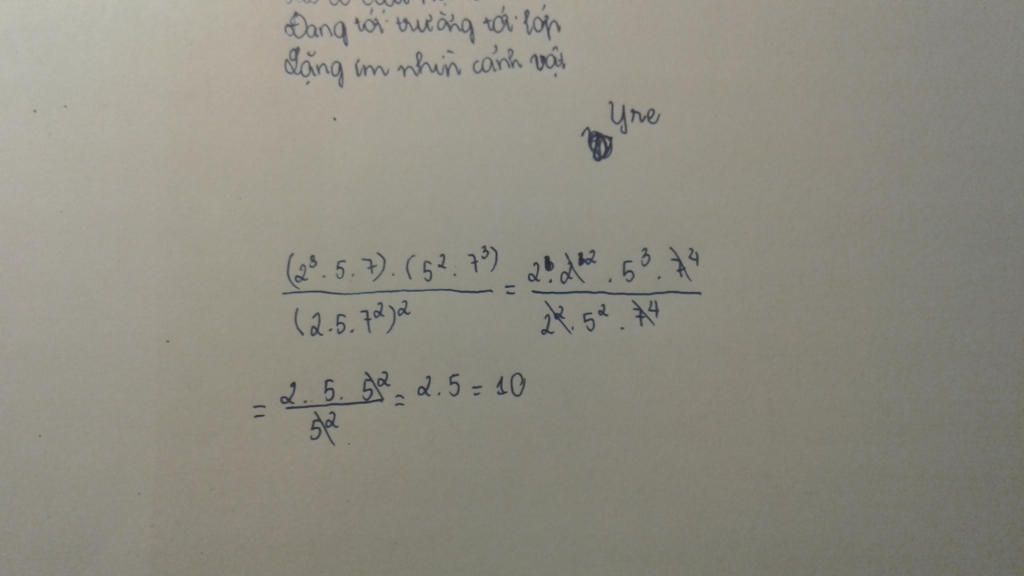 Đang tới trường tới lớp
Lặng im nhìn cảnh vật
Yre
(2³ . 5 . 7) . (5² . 7³) / (2 . 5 . 7²)² = 2 . 2² . 5³ . 7⁴ / 2² . 5² . 7⁴
= 2 . 5 . 5² / 5² = 2 . 5 = 10